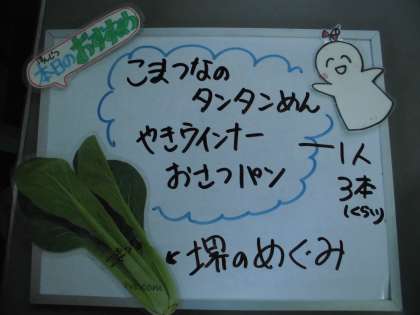 本日のおすすめ
こまつなの
タンタンめん
やきウインナー ー 1人
3本
(くらい)
おさつパン
堺のめぐみ